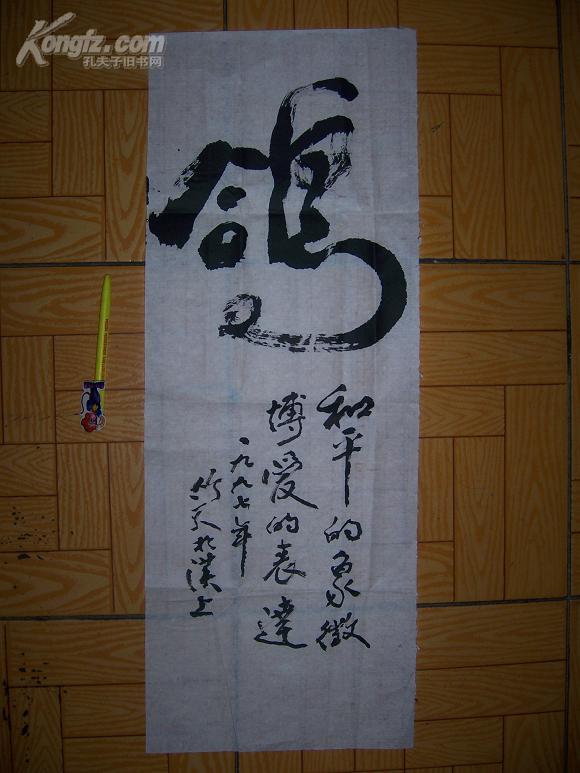 Kongfz.com
孔夫子旧书网
鸽
和平的象徵
博爱的表達
一九九七年
於漢上